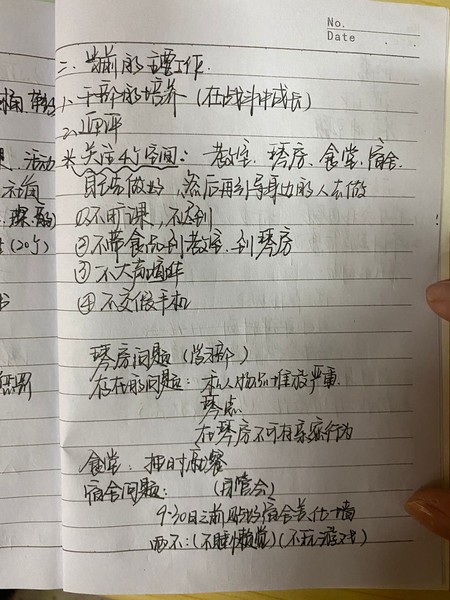 No.
Date
二、当前的主要工作.
1、干部的培养（在战斗中成长）
2、
* 关注4个空间：教室、琴房、食堂、宿舍.
自己先做好，然后再引导身边的人去做
①不旷课，不迟到
②不带食品到教室、到琴房
③不大声喧哗
④不交假手机
活动
（20个）
琴房问题（学干）
存在的问题：私人物品堆放严重.
琴点
在琴房不可有亲密行为
食堂：按时就餐
宿舍问题：（闭管会）
9.30日之前贴好宿舍美化墙
两不：（不睡懒觉）（不玩游戏）